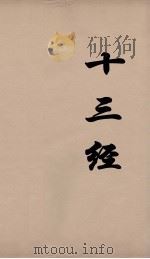 十三经
mtoou.info